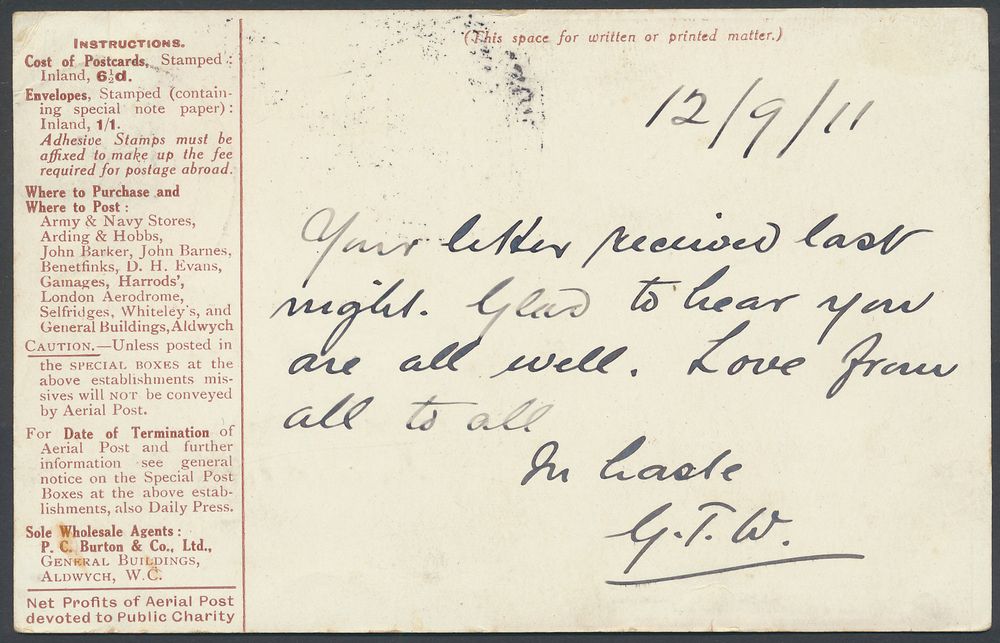 INSTRUCTIONS.
Cost of Postcards, Stamped :
Inland, 6½d.
Envelopes, Stamped (contain-
ing special note paper) :
Inland, 1/1.
Adhesive Stamps must be
affixed to make up the fee
required for postage abroad.
Where to Purchase and
Where to Post :
Army & Navy Stores,
Arding & Hobbs,
John Barker, John Barnes,
Benetfinks, D. H. Evans,
Gamages, Harrods',
London Aerodrome,
Selfridges, Whiteley's, and
General Buildings, Aldwych
CAUTION.—Unless posted in
the SPECIAL BOXES at the
above establishments mis-
sives will NOT be conveyed
by Aerial Post.
For Date of Termination of
Aerial Post and further
information see general
notice on the Special Post
Boxes at the above estab-
lishments, also Daily Press.
Sole Wholesale Agents :
P. C. Burton & Co., Ltd.,
GENERAL BUILDINGS,
ALDWYCH, W.C.
Net Profits of Aerial Post
devoted to Public Charity
(This space for written or printed matter.)
12/9/11
Your letter received last
night. Glad to hear you
are all well. Love from
all to all
In haste
G.T.W.